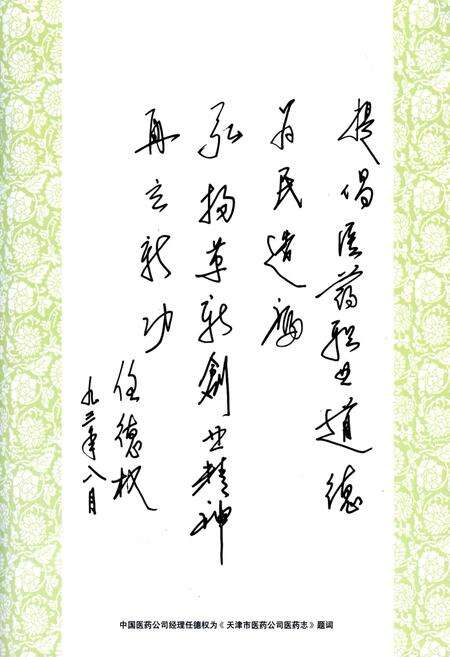 提倡医药职业道德
为民造福
弘扬革新創业精神
再立新功
任德权
九三年八月
中国医药公司经理任德权为《天津市医药公司医药志》题词